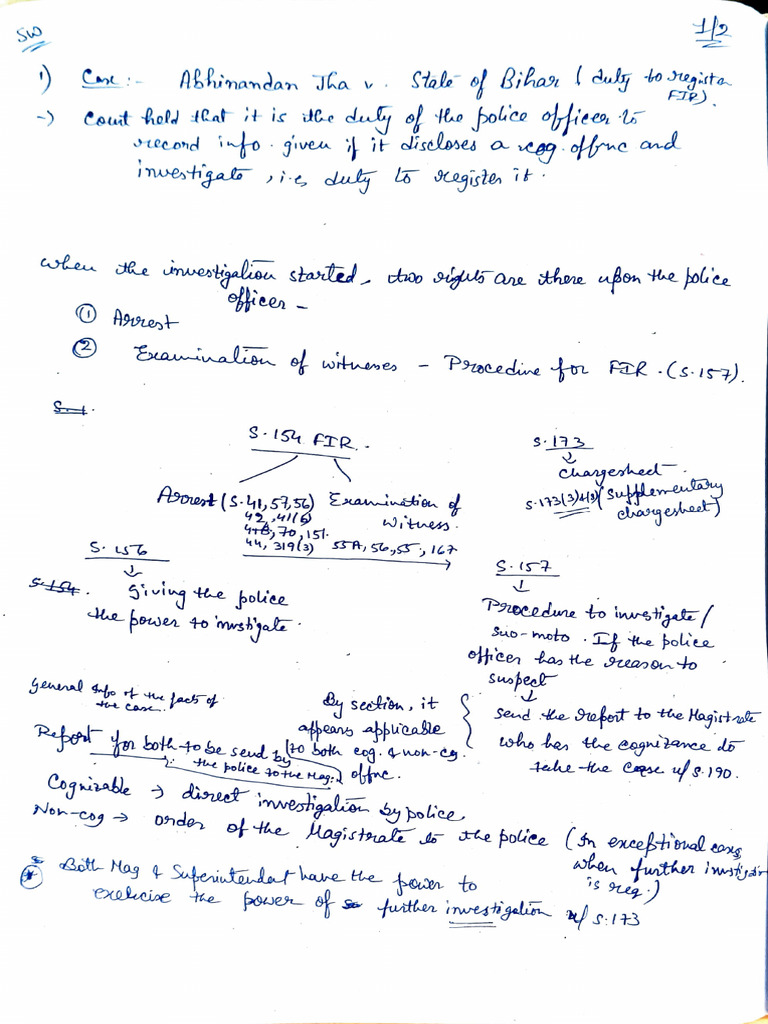 SW
1/2
1) Case :- Abhinandan Jha v. State of Bihar (duty to register
FIR).
-> Court held that it is the duty of the police officer to
record info. given if it discloses a cog. offnc and
investigate, i.e, duty to register it.
when the investigation started, two rights are there upon the police
officer -
① Arrest
② Examination of witnesses - Procedure for FIR. (S.157).
S.154 FIR.
S.173
↓
Chargesheet.
S.173(3)4(8) (Supplementary
chargesheet)
Arrest (S.41, 57, 56) Examination of
witness.
42, 41(b)
70, 151
44, 319(3) 55A, 56, 55, 167
S.156
↓
S.154. giving the police
the power to investigate.
S.157
↓
Procedure to investigate/
suo-moto. If the police
officer has the reason to
suspect
↓
send the report to the Magistrate
who has the cognizance to
take the case u/s.190.
By section, it
appears applicable
to both cog. & non-cog.
offnc.
General info of the facts of
the case.
Report for both to be send by
the police to the Mag.
Cognizable → direct investigation by police
Non-cog → order of the Magistrate to the police (In exceptional cases,
when further investigation
is req.)
* Both Mag & Superintendent have the power to
exercise the power of further investigation u/s.173